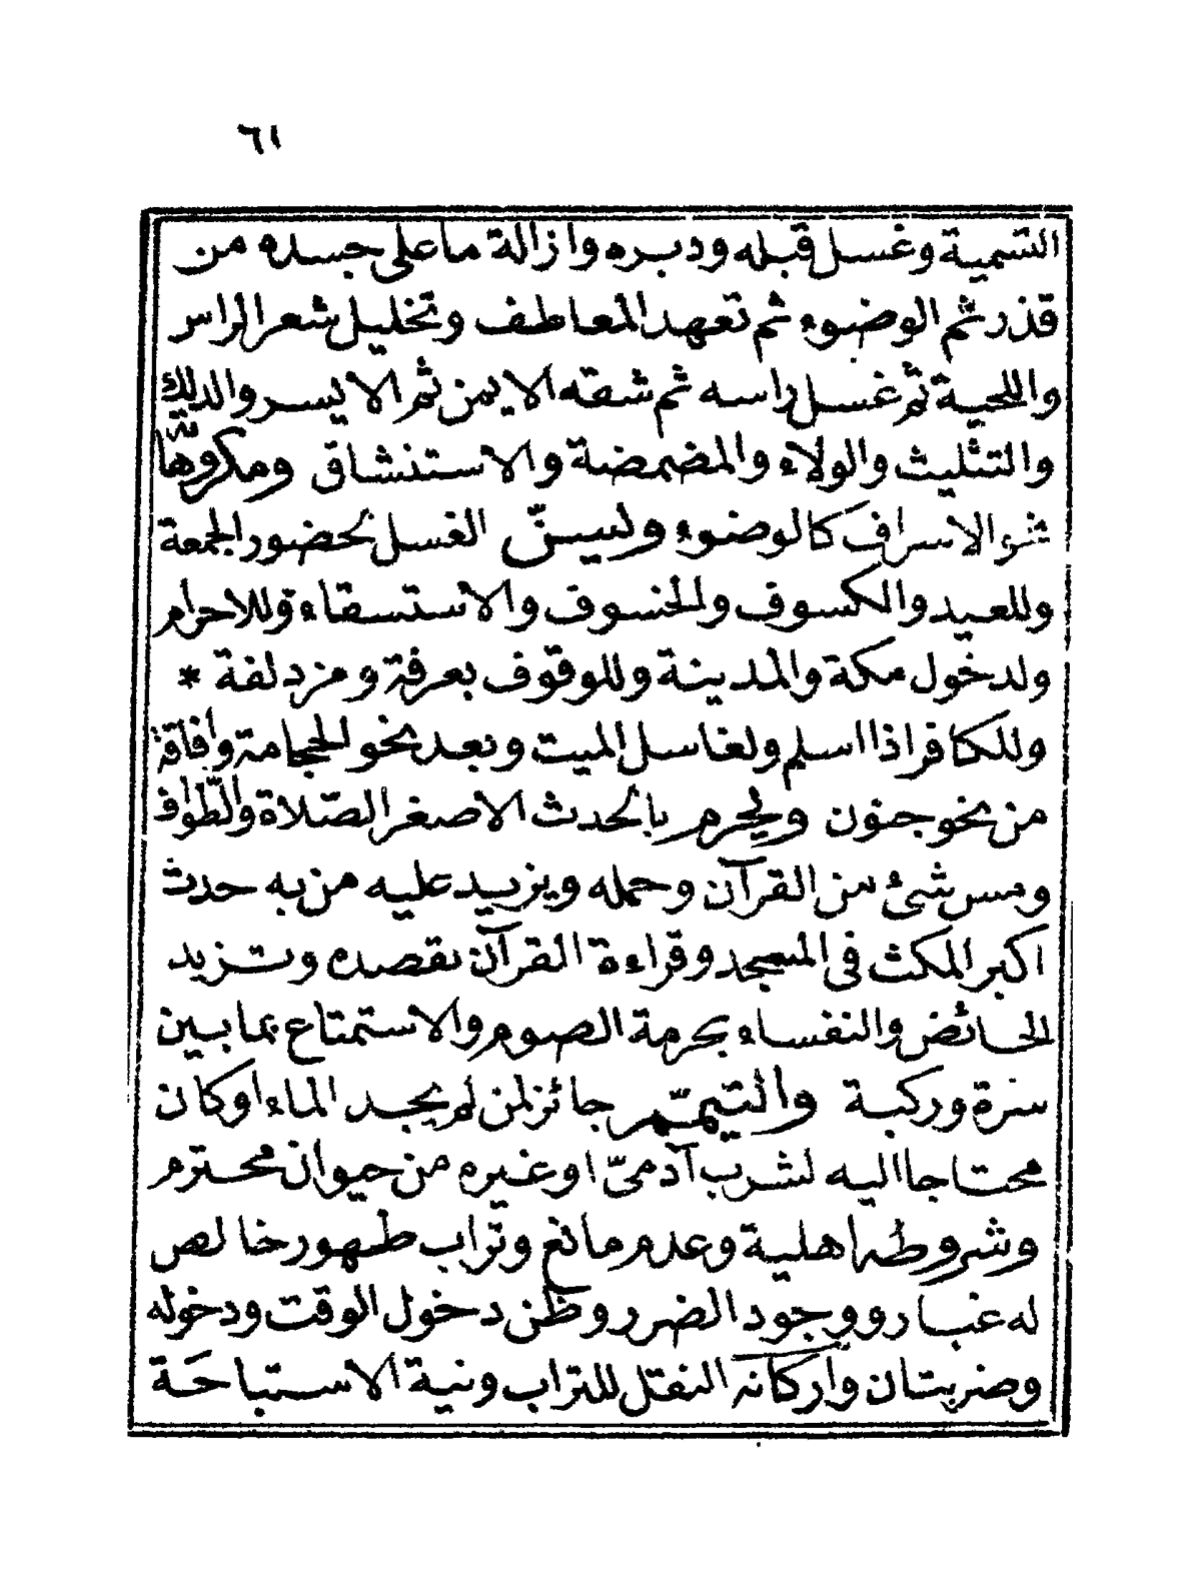 ٦١
التسمية وغسل قبله ودبره وازالة ما على جسده من
قذر ثم الوضوء ثم تعهد المعاطف وتخليل شعر الراس
واللحية ثم غسل راسه ثم شقه الايمن ثم الايسر والدلك
والتثليث والولاء والمضمضة والاستنشاق ومكروها
ته الاسراف كالوضوء ويسنّ الغسل لحضور الجمعة
وللعيد والكسوف والخسوف والاستسقاء وللاحرام
ولدخول مكة والمدينة وللوقوف بعرفة ومزدلفة *
وللكافر اذا اسلم ولغاسل الميت وبعد نحو الحجامة وافاقة
من نحو جنون ويحرم بالحدث الاصغر الصّلاة والطّواف
ومس شئ من القرآن وحمله ويزيد عليه من به حدث
اكبر المكث فى المسجد وقراءة القرآن بقصده وتزيد
الحائض والنفساء بحرمة الصوم والاستمتاع بما بين
سرة وركبة والتيمّم جائز لمن لم يجد الماء او كان
محتاجا اليه لشرب آدمىّ او غيره من حيوان محترم
وشروطه اهلية وعدم مانع وتراب طهور خالص
له غبار ووجود الضرر وظن دخول الوقت ودخوله
وضربتان واركانه النقل للتراب ونية الاستباحة